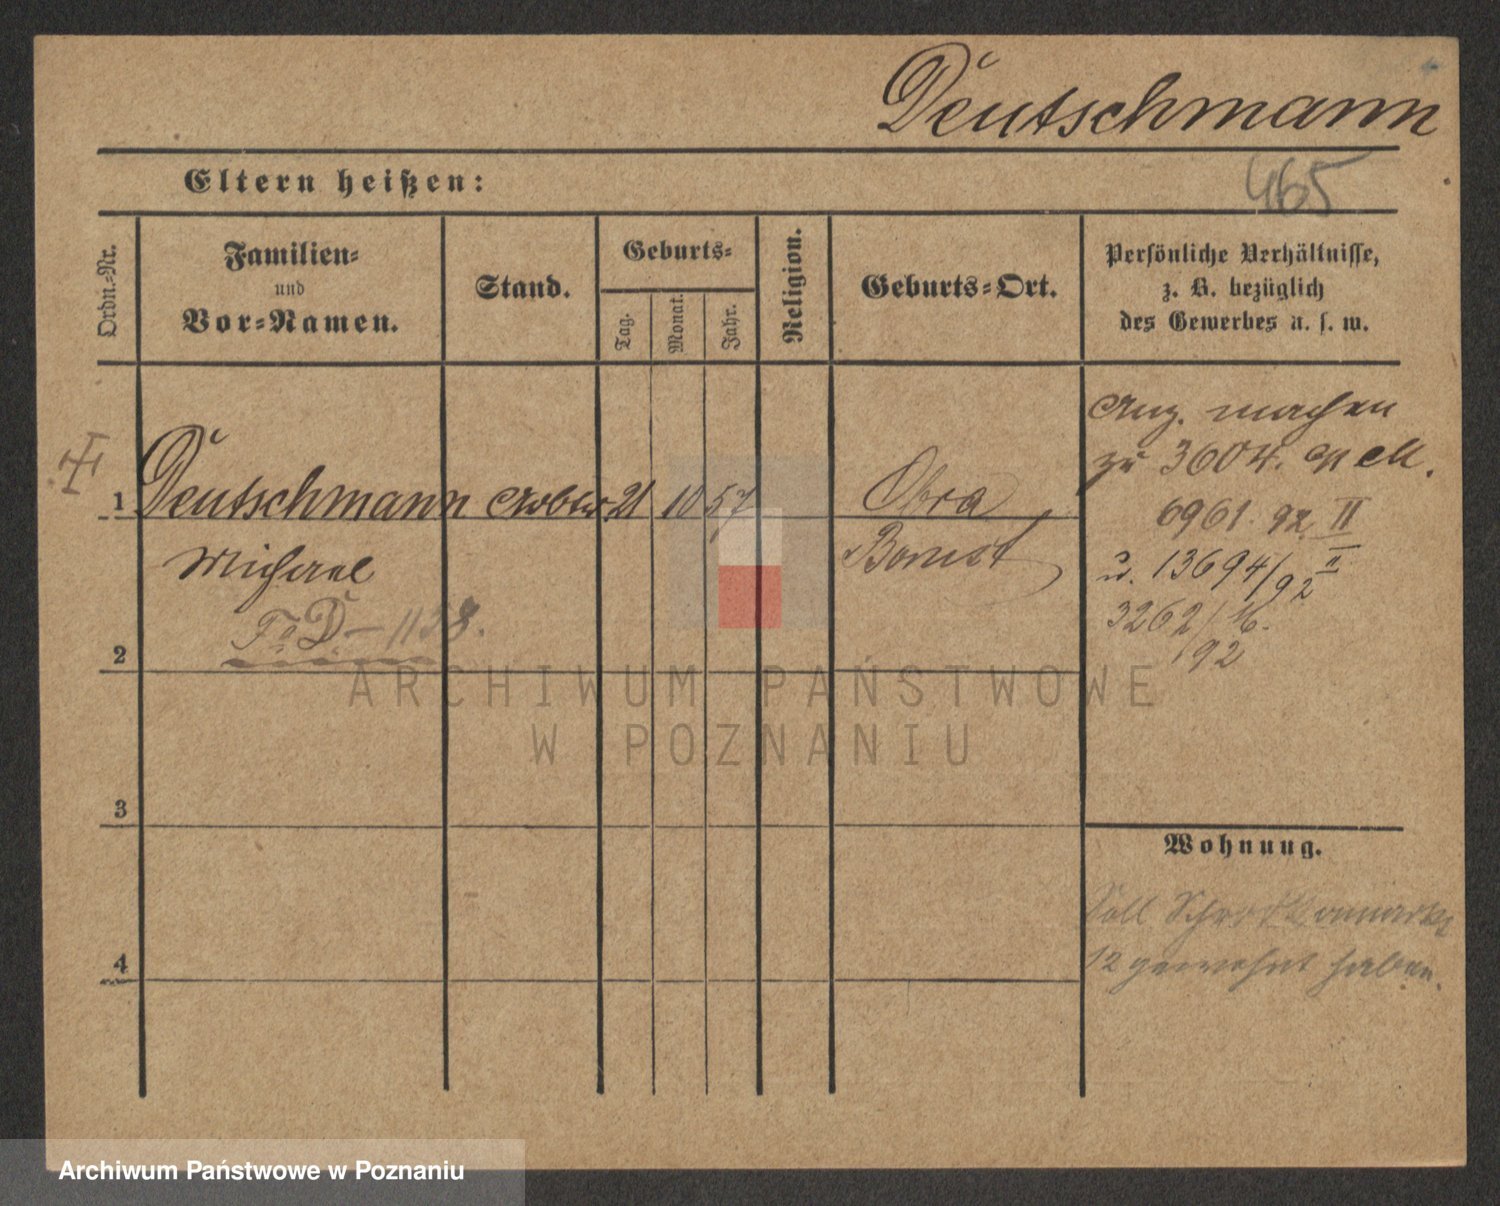 Deutschmann
465
Eltern heißen:
Ordn.-Nr.
Familien-
und
Vor-Namen.
Stand.
Geburts-
Tag.
Monat.
Jahr.
Religion.
Geburts-Ort.
Persönliche Verhältnisse,
z. B. bezüglich
des Gewerbes u. s. w.
1 Deutschmann Arbtr. 21 10 57 Obra
Michael Bomst
Anz. machen
zu 3604.
6961. 92 II
u. 13694/92 II
3262/16.
92
D-1138.
2
3
4
Wohnung.
Soll
12 gewohnt haben.
ARCHIWUM PAŃSTWOWE
W POZNANIU
Archiwum Państwowe w Poznaniu